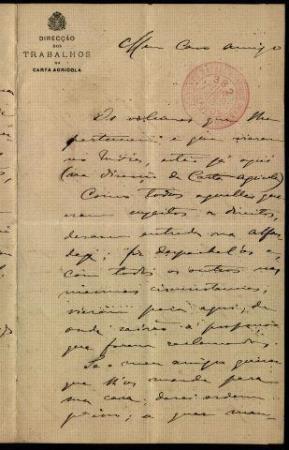 DIRECÇÃO
DOS
TRABALHOS
DA
CARTA AGRICOLA
Meu Caro Amigo
Os volumes que lhe
pertencem e que vieram
no Indio, estão já aqui
(na direcção da Carta Agricola)
Como todos aquelles que
eram sujeitos a direitos,
deram entrada na alfan
dega; fiz despachal'os e
com todos os outros nas
mesmas circumstancias,
vieram para aqui, de
onde sairão á proporção
que forem reclamados.
Se o meu amigo quizer
que lh'os mande para
sua casa, darei ordem
a quem